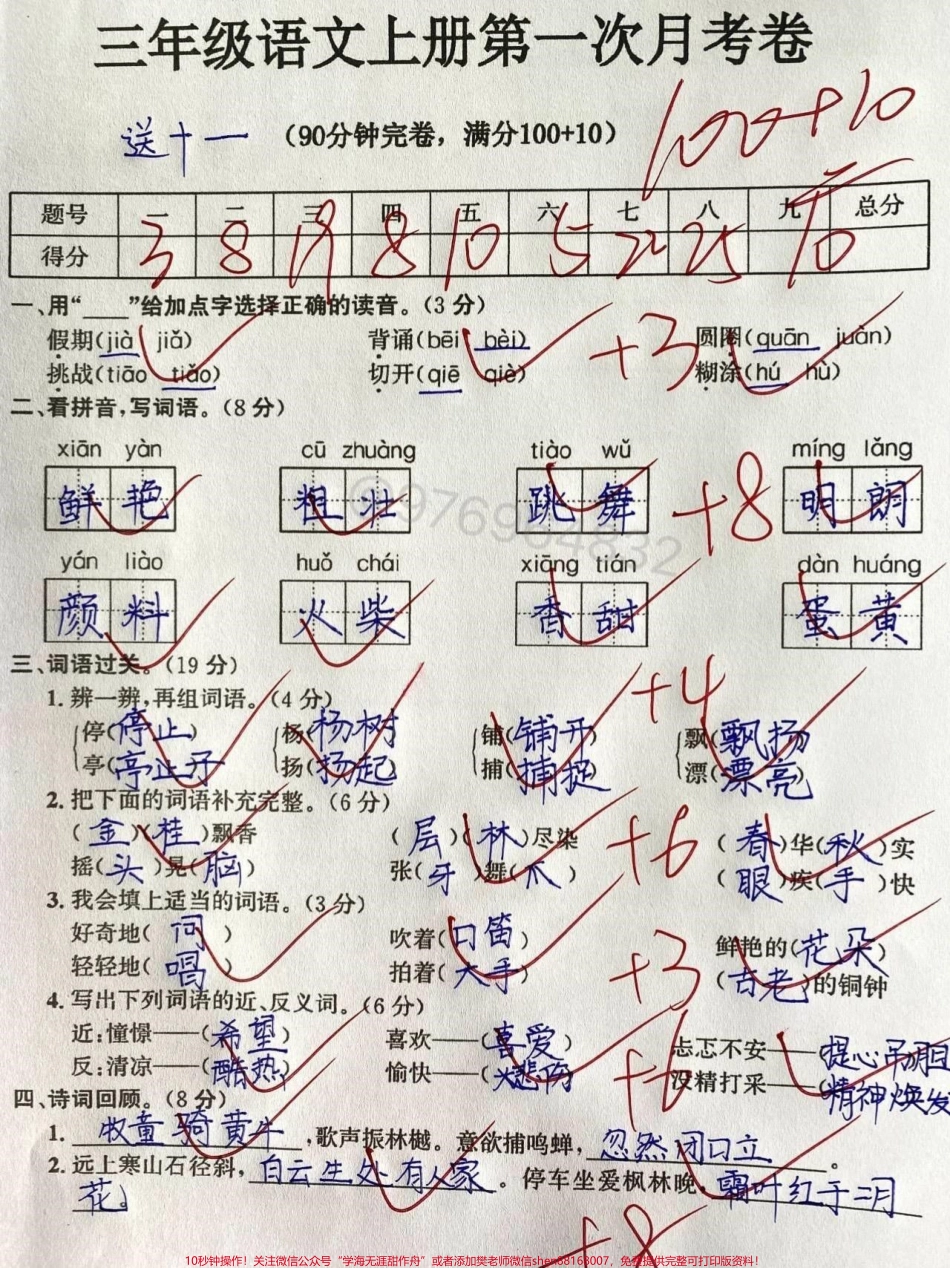 三年级语文上册第一次月考卷
送十一 （90分钟完卷，满分100+10） 100+10
题号 一 二 三 四 五 六 七 八 九 总分
得分 3 8 19 8 10 5 22 25 10
一、用“____”给加点字选择正确的读音。（3分）
假期(jià jiǎ) 背诵(bēi bèi) +3 圆圈(quān juàn)
挑战(tiāo tiǎo) 切开(qiē qiè) 糊涂(hú hù)
二、看拼音，写词语。（8分）
xiān yàn cū zhuàng tiào wǔ míng lǎng
鲜艳 粗壮 跳舞 +8 明朗
yán liào huǒ chái xiāng tián dàn huáng
颜料 火柴 香甜 蛋黄
三、词语过关。（19分）
1. 辨一辨，再组词语。（4分） +4
停(停止) 杨(杨树) 铺(铺开) 飘(飘扬)
亭(亭止子) 扬(扬起) 捕(捕捉) 漂(漂亮)
2. 把下面的词语补充完整。（6分）
(金)(桂)飘香 (层)(林)尽染 +6 (春)华(秋)实
摇(头)晃(脑) 张(牙)舞(爪) (眼)疾(手)快
3. 我会填上适当的词语。（3分）
好奇地(问) 吹着(口笛) +3 鲜艳的(花朵)
轻轻地(唱) 拍着(大手) (古老)的铜钟
4. 写出下列词语的近、反义词。（6分）
近：憧憬——(希望) 喜欢——(喜爱) +6 忐忑不安——(提心吊胆)
反：清凉——(酷热) 愉快——(悲伤) 没精打采——(精神焕发)
四、诗词回顾。（8分）
1. 牧童骑黄牛，歌声振林樾。意欲捕鸣蝉，忽然闭口立。
2. 远上寒山石径斜，白云生处有人家。停车坐爱枫林晚，霜叶红于二月
花。
+8
@976964832
10秒钟操作！关注微信公众号“学海无涯甜作舟”或者添加樊老师微信shen68168007，免费提供完整可打印版资料！